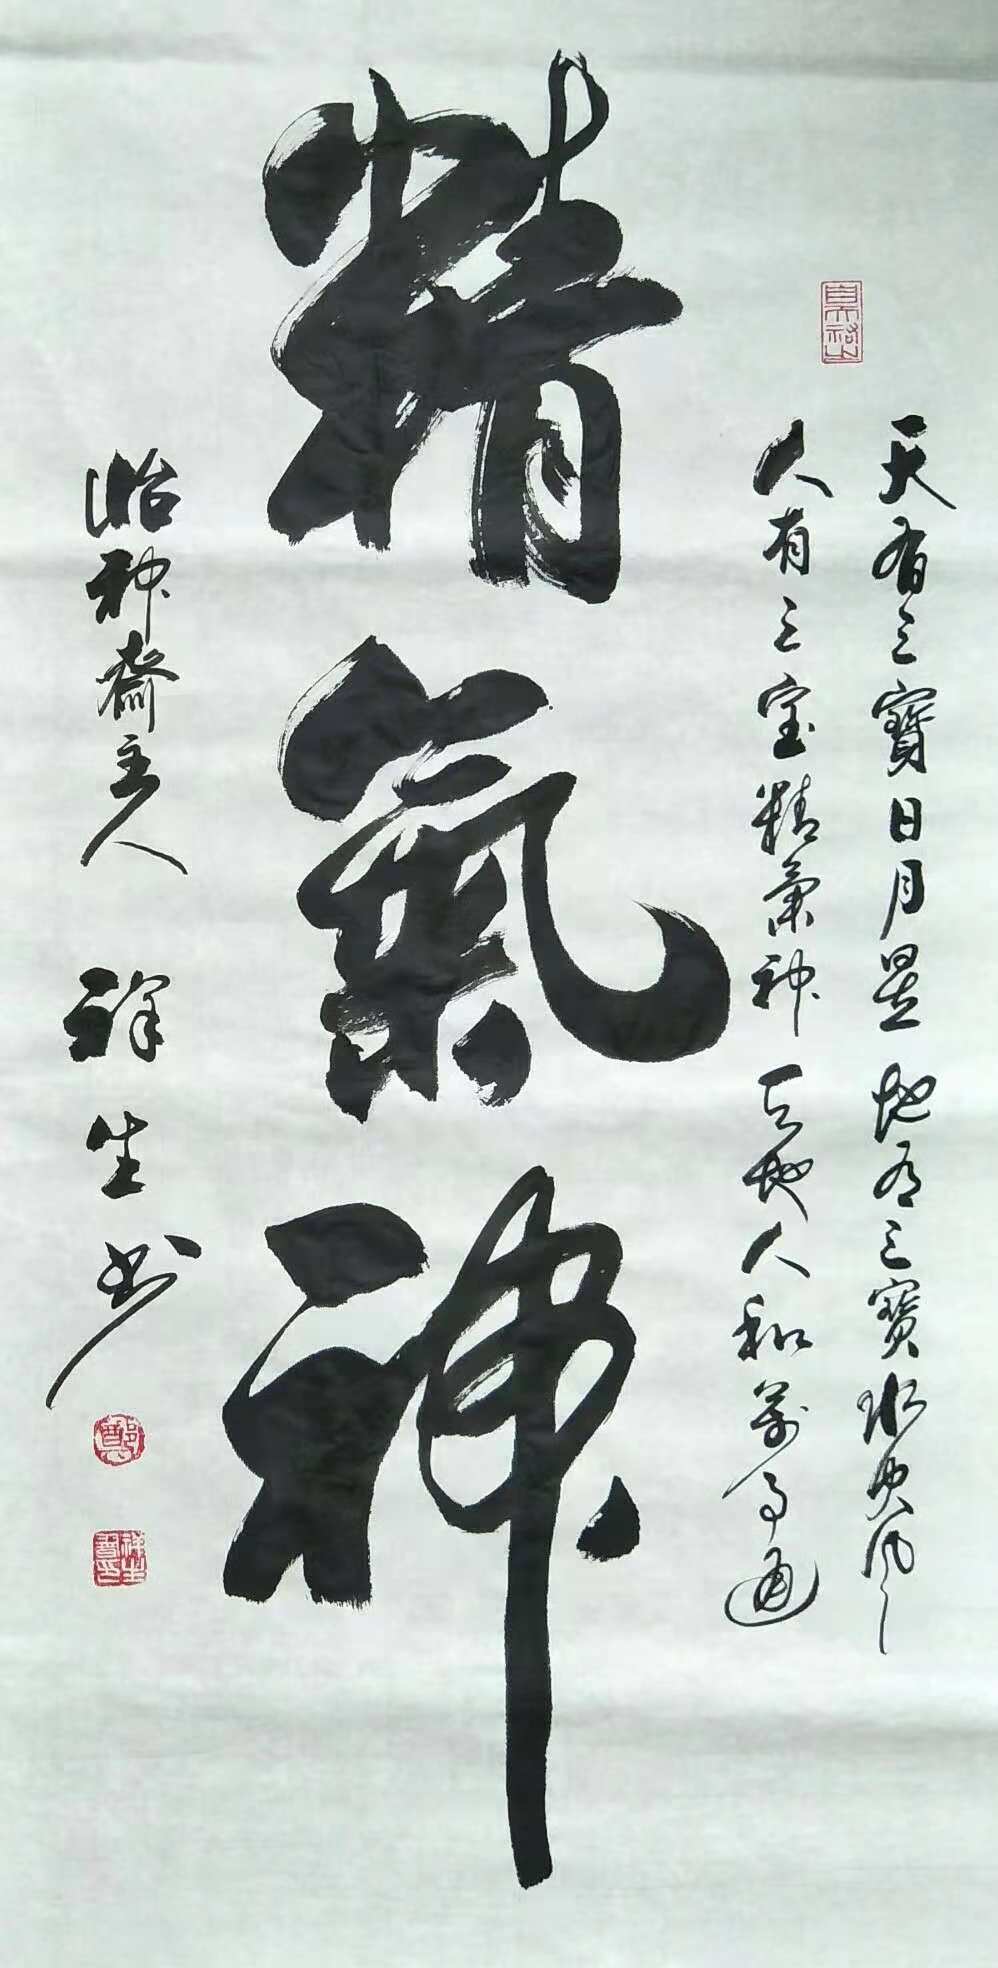 天有三寶日月星地有三寶水火風
人有三宝精氣神天地人和萬事通
精氣神
怡神齋主人 祥生书
鄭
祥生書印